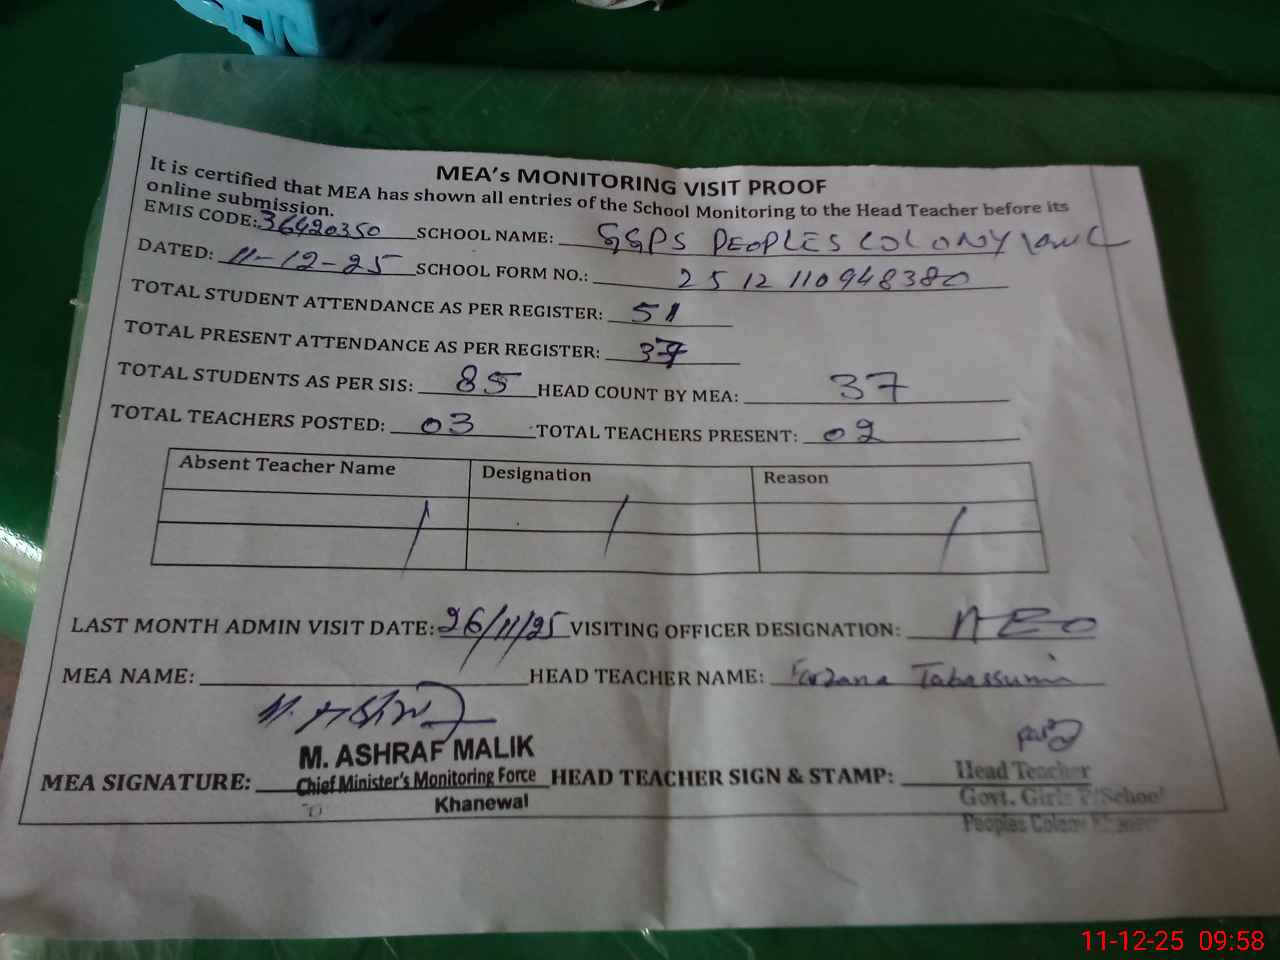 MEA's MONITORING VISIT PROOF
It is certified that MEA has shown all entries of the School Monitoring to the Head Teacher before its
online submission.
EMIS CODE: 36420350 SCHOOL NAME: GGPS PEOPLES COLONY
DATED: 11-12-25 SCHOOL FORM NO.: 2512110948380
TOTAL STUDENT ATTENDANCE AS PER REGISTER: 51
TOTAL PRESENT ATTENDANCE AS PER REGISTER: 37
TOTAL STUDENTS AS PER SIS: 85 HEAD COUNT BY MEA: 37
TOTAL TEACHERS POSTED: 03 TOTAL TEACHERS PRESENT: 02
Absent Teacher Name Designation Reason
LAST MONTH ADMIN VISIT DATE: 26/11/25 VISITING OFFICER DESIGNATION: AEO
MEA NAME: HEAD TEACHER NAME: Farzana Tabassum
M. ASHRAF MALIK
MEA SIGNATURE: Chief Minister's Monitoring Force HEAD TEACHER SIGN & STAMP: Head Teacher
Khanewal Govt. Girls P/School
Peoples Colony
11-12-25 09:58